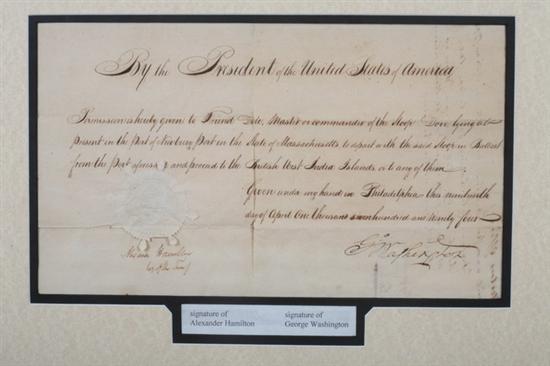 By the President of the United States of America,
Permission is hereby given to Friend Dole, Master or commander of the Sloop Dove lying at
present in the port of Newbury Port in the State of Massachusetts to depart with the said Sloop in Ballast
from the Port aforesd & and proceed to the British West India Islands or to any of them
Given under my hand in Philadelphia this nineteenth
day of April One thousand seven hundred and ninety four
Go Washington
Alexander Hamilton
Secy of the Treasy
signature of
Alexander Hamilton
signature of
George Washington